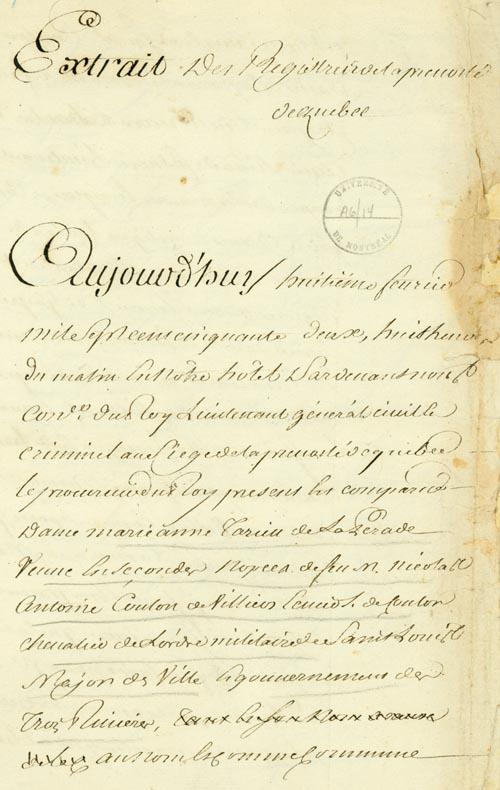 Extrait Des Registres de la prevosté
de quebec
UNIVERSITÉ
A6/14
DE MONTRÉAL
Aujourd'huy huitiéme feurier
mil sept cent cinquante deux, huit heures
du matin En Nôtre hôtel Pardevant nous
Con.er du Roy Lieutenant général civil &
criminel au Siege de la prevosté de quebec
le procureur du Roy present Est comparue
Dame marie anne Tarieu de La Pérade
Veuve En secondes Nopces de feu M. Nicolas
Antoine Coulon de Villiers Ecuier S. de Coulon
chevalier de L'ordre militaire de Saint Louis
Major de Ville & gouvernement des
Trois Rivieres,
au nom Et comme Commune